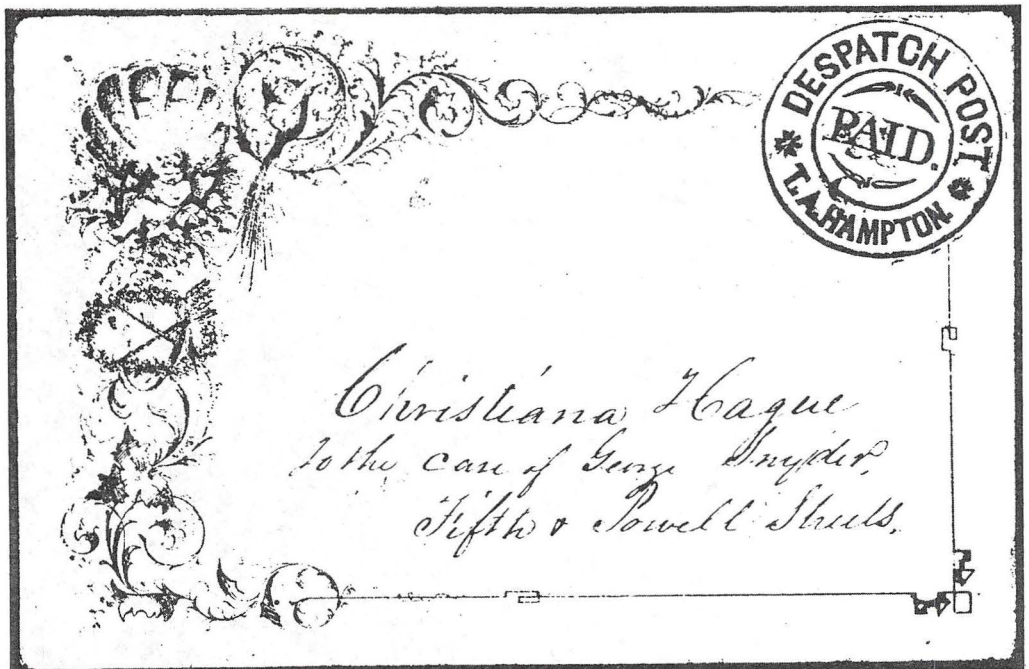 DESPATCH POST
PAID.
T. A. HAMPTON.
Christiana Hague
to the care of George Snyder,
Fifth & Powell Streets.